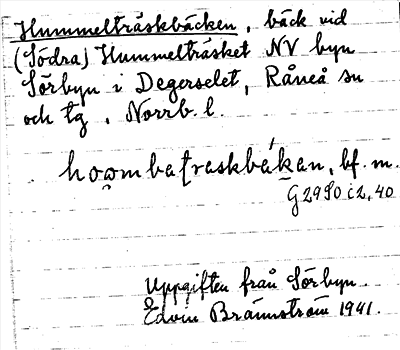 Hummelträskbäcken, bäck vid
(Södra) Hummelträsket NV byn
Sörbyn i Degerselet, Råneå sn
och tg, Norrb. l.
bf. m.
G2950 i 2, 40
Uppgiften från Sörbyn
Edvin Brännström 1941.